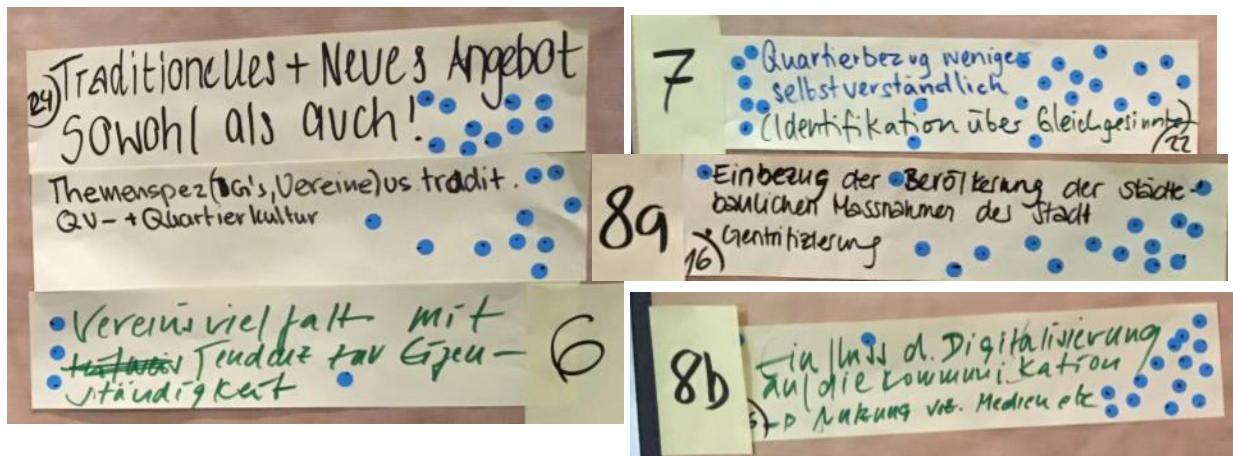 24)
Traditionelles + Neues Angebot
Sowohl als auch!
Themenspez (IG's, Vereine) vs tradit.
QV- + Quartierkultur
Vereinsvielfalt mit
Tendenz zur Eigen-
ständigkeit
6
7
Quartierbezug weniger
selbstverständlich
(Identifikation über Gleichgesinnte)
22
8a
Einbezug der Bevölkerung der städte-
baulichen Massnahmen der Stadt
• Gentrifizierung
16)
8b
Einfluss d. Digitalisierung
auf die Kommunikation
Nutzung Medien etc